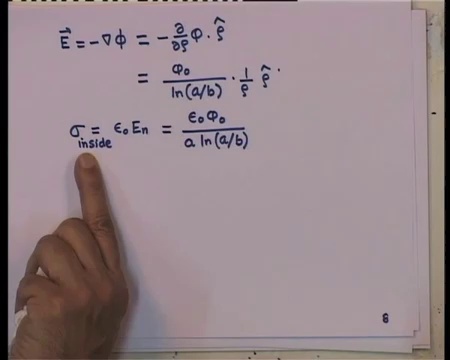 E⃗ = -∇φ = -∂/∂ρ φ · ρ̂
= φ₀/ln(a/b) · 1/ρ ρ̂
σ inside = ε₀ Eₙ = ε₀φ₀/(a ln(a/b))
8